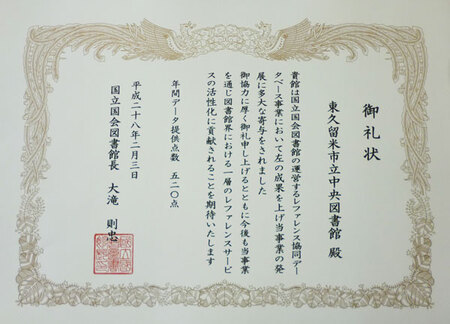 御礼状
東久留米市立中央図書館 殿
貴館は国立国会図書館の運営するレファレンス協同デー
タベース事業において左の成果を上げ当事業の発
展に多大な寄与をされました
御協力に厚く御礼申し上げるとともに今後も当事業
を通じ図書館界における一層のレファレンスサービ
スの活性化に貢献されることを期待いたします
年間データ提供点数 五二〇点
平成二十八年二月三日
国立国会図書館長 大滝 則忠